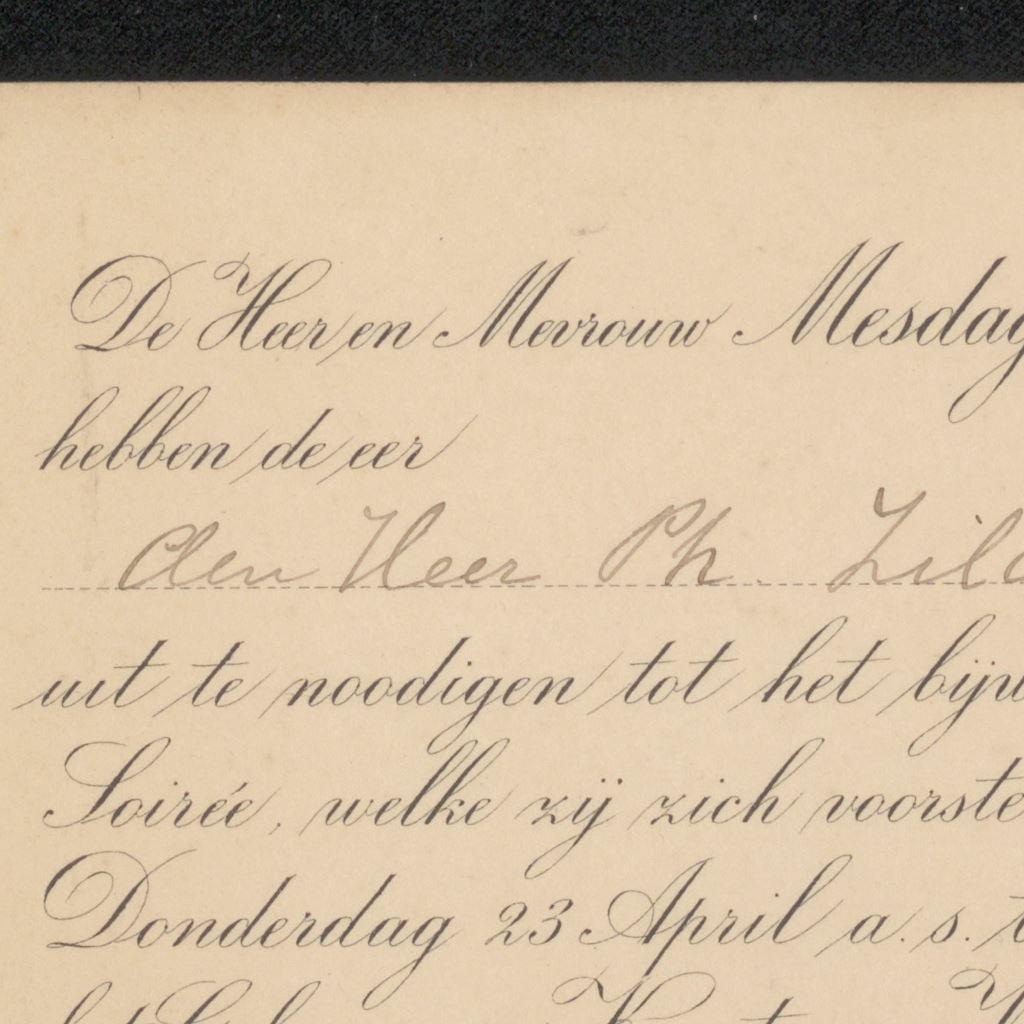 De Heer en Mevrouw Mesdag
hebben de eer
den Heer Ph. Zilc
uit te noodigen tot het bijw
Soirée, welke zij zich voorste
Donderdag 23 April a. s. t